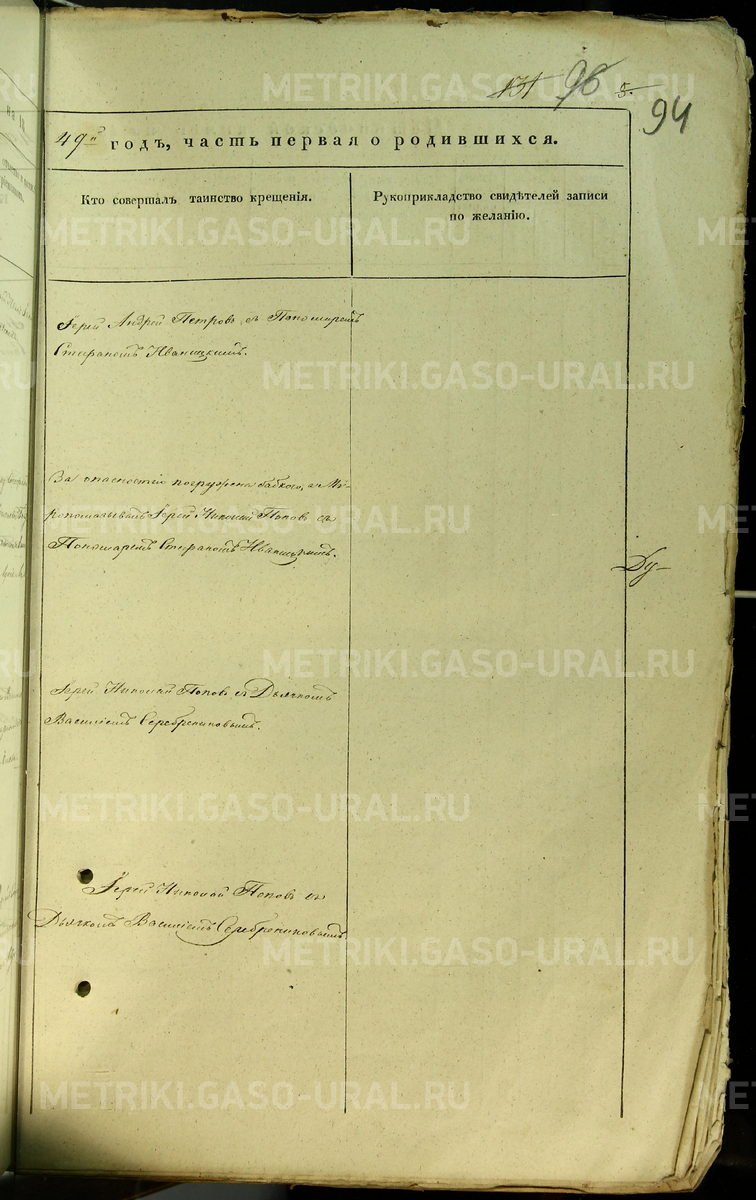 131 96 5.
94
49й годъ, часть первая о родившихся.
Кто совершалъ таинство крещенія.
Рукоприкладство свидѣтелей записи
по желанію.
Іерей Андрей Петровъ съ Пономаремъ
Стефаномъ Иваницкимъ.
За опасностію погружена бабкою, а Мѵ-
ропомазывалъ Іерей Николай Поповъ съ
Пономаремъ Стефаномъ Иваницкимъ.
Ду-
Іерей Николай Поповъ съ Дьячкомъ
Василіемъ Серебрениковымъ.
Іерей Николай Поповъ съ
Дьячкомъ Василіемъ Серебрениковымъ.
METRIKI.GASO-URAL.RU